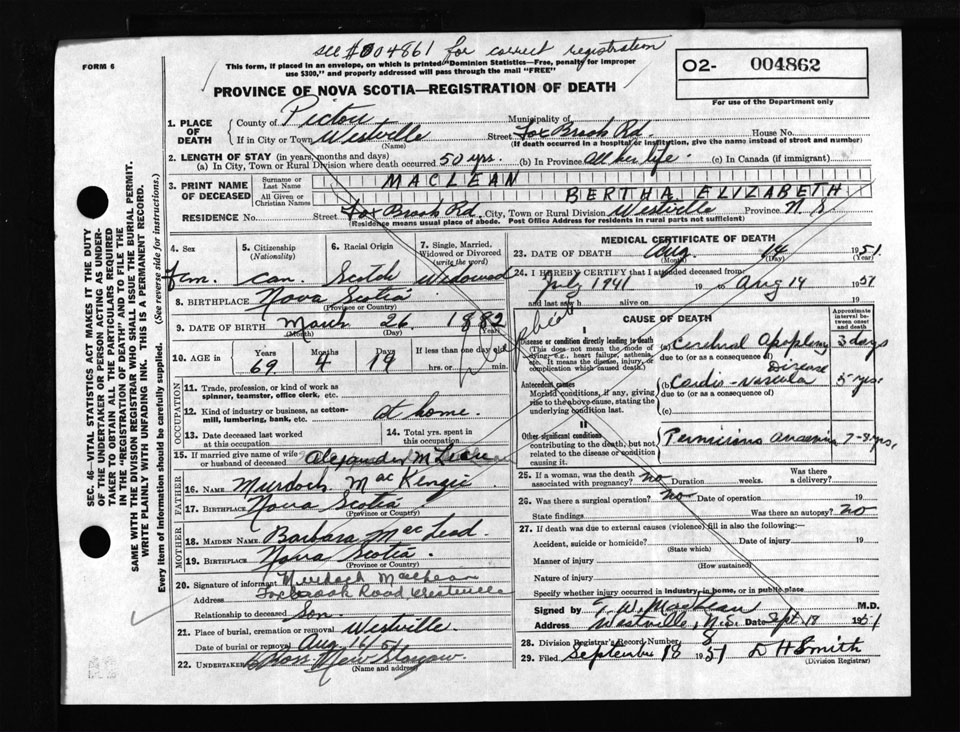 see #004861 for correct registration
FORM 6
This form, if placed in an envelope, on which is printed "Dominion Statistics—Free, penalty for improper
use $300," and properly addressed will pass through the mail "FREE"
O2- 004862
For use of the Department only
PROVINCE OF NOVA SCOTIA—REGISTRATION OF DEATH
1. PLACE OF DEATH
County of Pictou Municipality of
If in City or Town Westville Street Fox Brook Rd. House No.
(Name) (If death occurred in a hospital or institution, give the name instead of street and number)
2. LENGTH OF STAY (in years, months and days)
(a) In City, Town or Rural Division where death occurred 50 yrs. (b) In Province All her life. (c) In Canada (if immigrant)
3. PRINT NAME OF DECEASED
Surname or Last Name MACLEAN
All Given or Christian Names BERTHA ELIZABETH
RESIDENCE No. Street Fox Brook Rd. City, Town or Rural Division Westville Province N.S.
(Residence means usual place of abode. Post Office Address for residents in rural parts not sufficient)
4. Sex
5. Citizenship (Nationality)
6. Racial Origin
7. Single, Married, Widowed or Divorced (write the word)
Fem. Can. Scotch Widowed
8. BIRTHPLACE Nova Scotia
(Province or Country)
9. DATE OF BIRTH March 26. 1882
(Month) (Day) (Year)
10. AGE in Years Months Days If less than one day old
69 4 19 hrs. or min.
OCCUPATION
11. Trade, profession, or kind of work as
spinner, teamster, office clerk, etc.
12. Kind of industry or business, as cotton-
mill, lumbering, bank, etc. at home.
13. Date deceased last worked
at this occupation
14. Total yrs. spent in
this occupation
15. If married give name of wife
or husband of deceased Alexander McLean
FATHER
16. NAME Murdoch MacKenzie
17. BIRTHPLACE Nova Scotia
(Province or Country)
MOTHER
18. MAIDEN NAME. Barbara MacLeod
19. BIRTHPLACE Nova Scotia.
(Province or Country)
20. Signature of informant Murdoch MacLean
Address Foxbrook Road Westville
Relationship to deceased Son.
21. Place of burial, cremation or removal Westville.
Date of burial or removal Aug 16/51
22. UNDERTAKER New Glasgow.
(Name and address)
MEDICAL CERTIFICATE OF DEATH
23. DATE OF DEATH Aug. 14 1951
(Month) (Day) (Year)
24. I HEREBY CERTIFY that I attended deceased from
July 1941 19 to Aug 14 1951
and last saw h alive on 19
Duplicate
CAUSE OF DEATH
Approximate interval between onset and death
I
Disease or condition directly leading to death
(This does not mean the mode of
dying, e.g., heart failure, asthenia,
etc. It means the disease, injury, or
complication which caused death.)
(a) Cerebral Apoplexy 3 days
due to (or as a consequence of)
Antecedent causes
Morbid conditions, if any, giving
rise to the above cause, stating the
underlying condition last.
(b) Cardio-vascular Disease 5 yrs.
due to (or as a consequence of)
(c)
II
Other significant conditions
contributing to the death, but not
related to the disease or condition
causing it.
Pernicious Anaemia 7-8 yrs.
25. If a woman, was the death
associated with pregnancy? no Duration weeks. Was there
a delivery?
26. Was there a surgical operation? no Date of operation 19
State findings Was there an autopsy? no
27. If death was due to external causes (violence) fill in also the following:—
Accident, suicide or homicide? Date of injury 19
(State which)
Manner of injury
(How sustained)
Nature of injury
Specify whether injury occurred in industry, in home, or in public place
Signed by MacLean M.D.
Address Westville, N.S. Date Sept. 18 1951
28. Division Registrar's Record Number 8
29. Filed September 18 1951 D H Smith
(Division Registrar)
SEC. 46—VITAL STATISTICS ACT MAKES IT THE DUTY
OF THE UNDERTAKER OR PERSON ACTING AS UNDER-
TAKER TO OBTAIN ALL THE PARTICULARS REQUIRED
IN THE "REGISTRATION OF DEATH" AND TO FILE THE
SAME WITH THE DIVISION REGISTRAR WHO SHALL ISSUE THE BURIAL PERMIT.
WRITE PLAINLY WITH UNFADING INK. THIS IS A PERMANENT RECORD.
Every item of information should be carefully supplied. (See reverse side for instructions.)